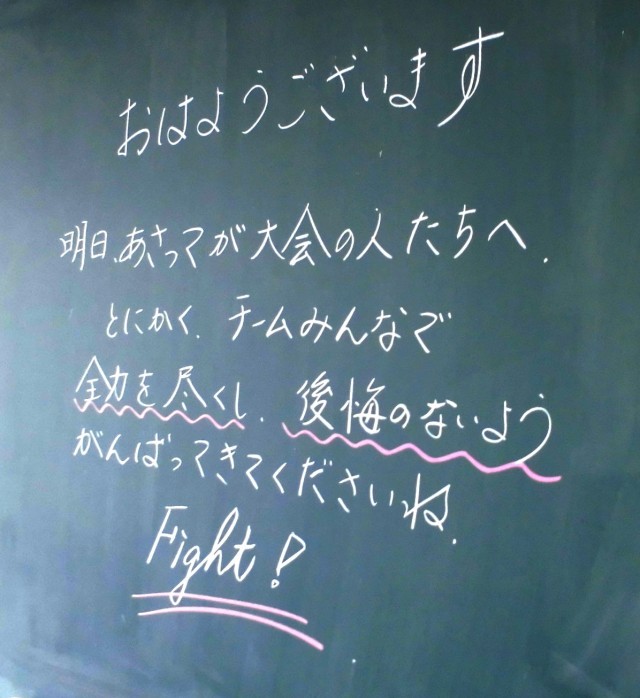 おはようございます
明日、あさってが大会の人たちへ.
とにかく、チームみんなで
全力を尽くし、後悔のないよう
がんばってきてくださいね.
Fight!